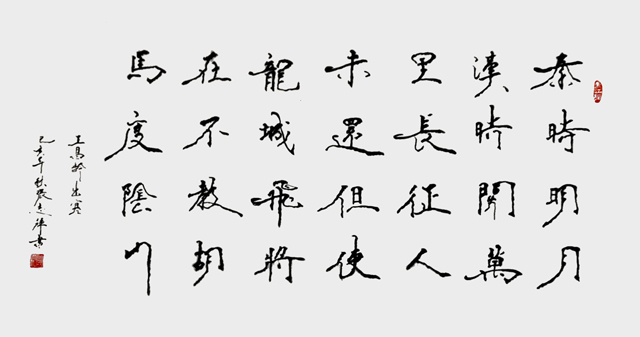 秦時明月
漢時關萬
里長征人
未還但使
龍城飛將
在不教胡
馬度陰山
王昌齡出塞
己亥年秋書